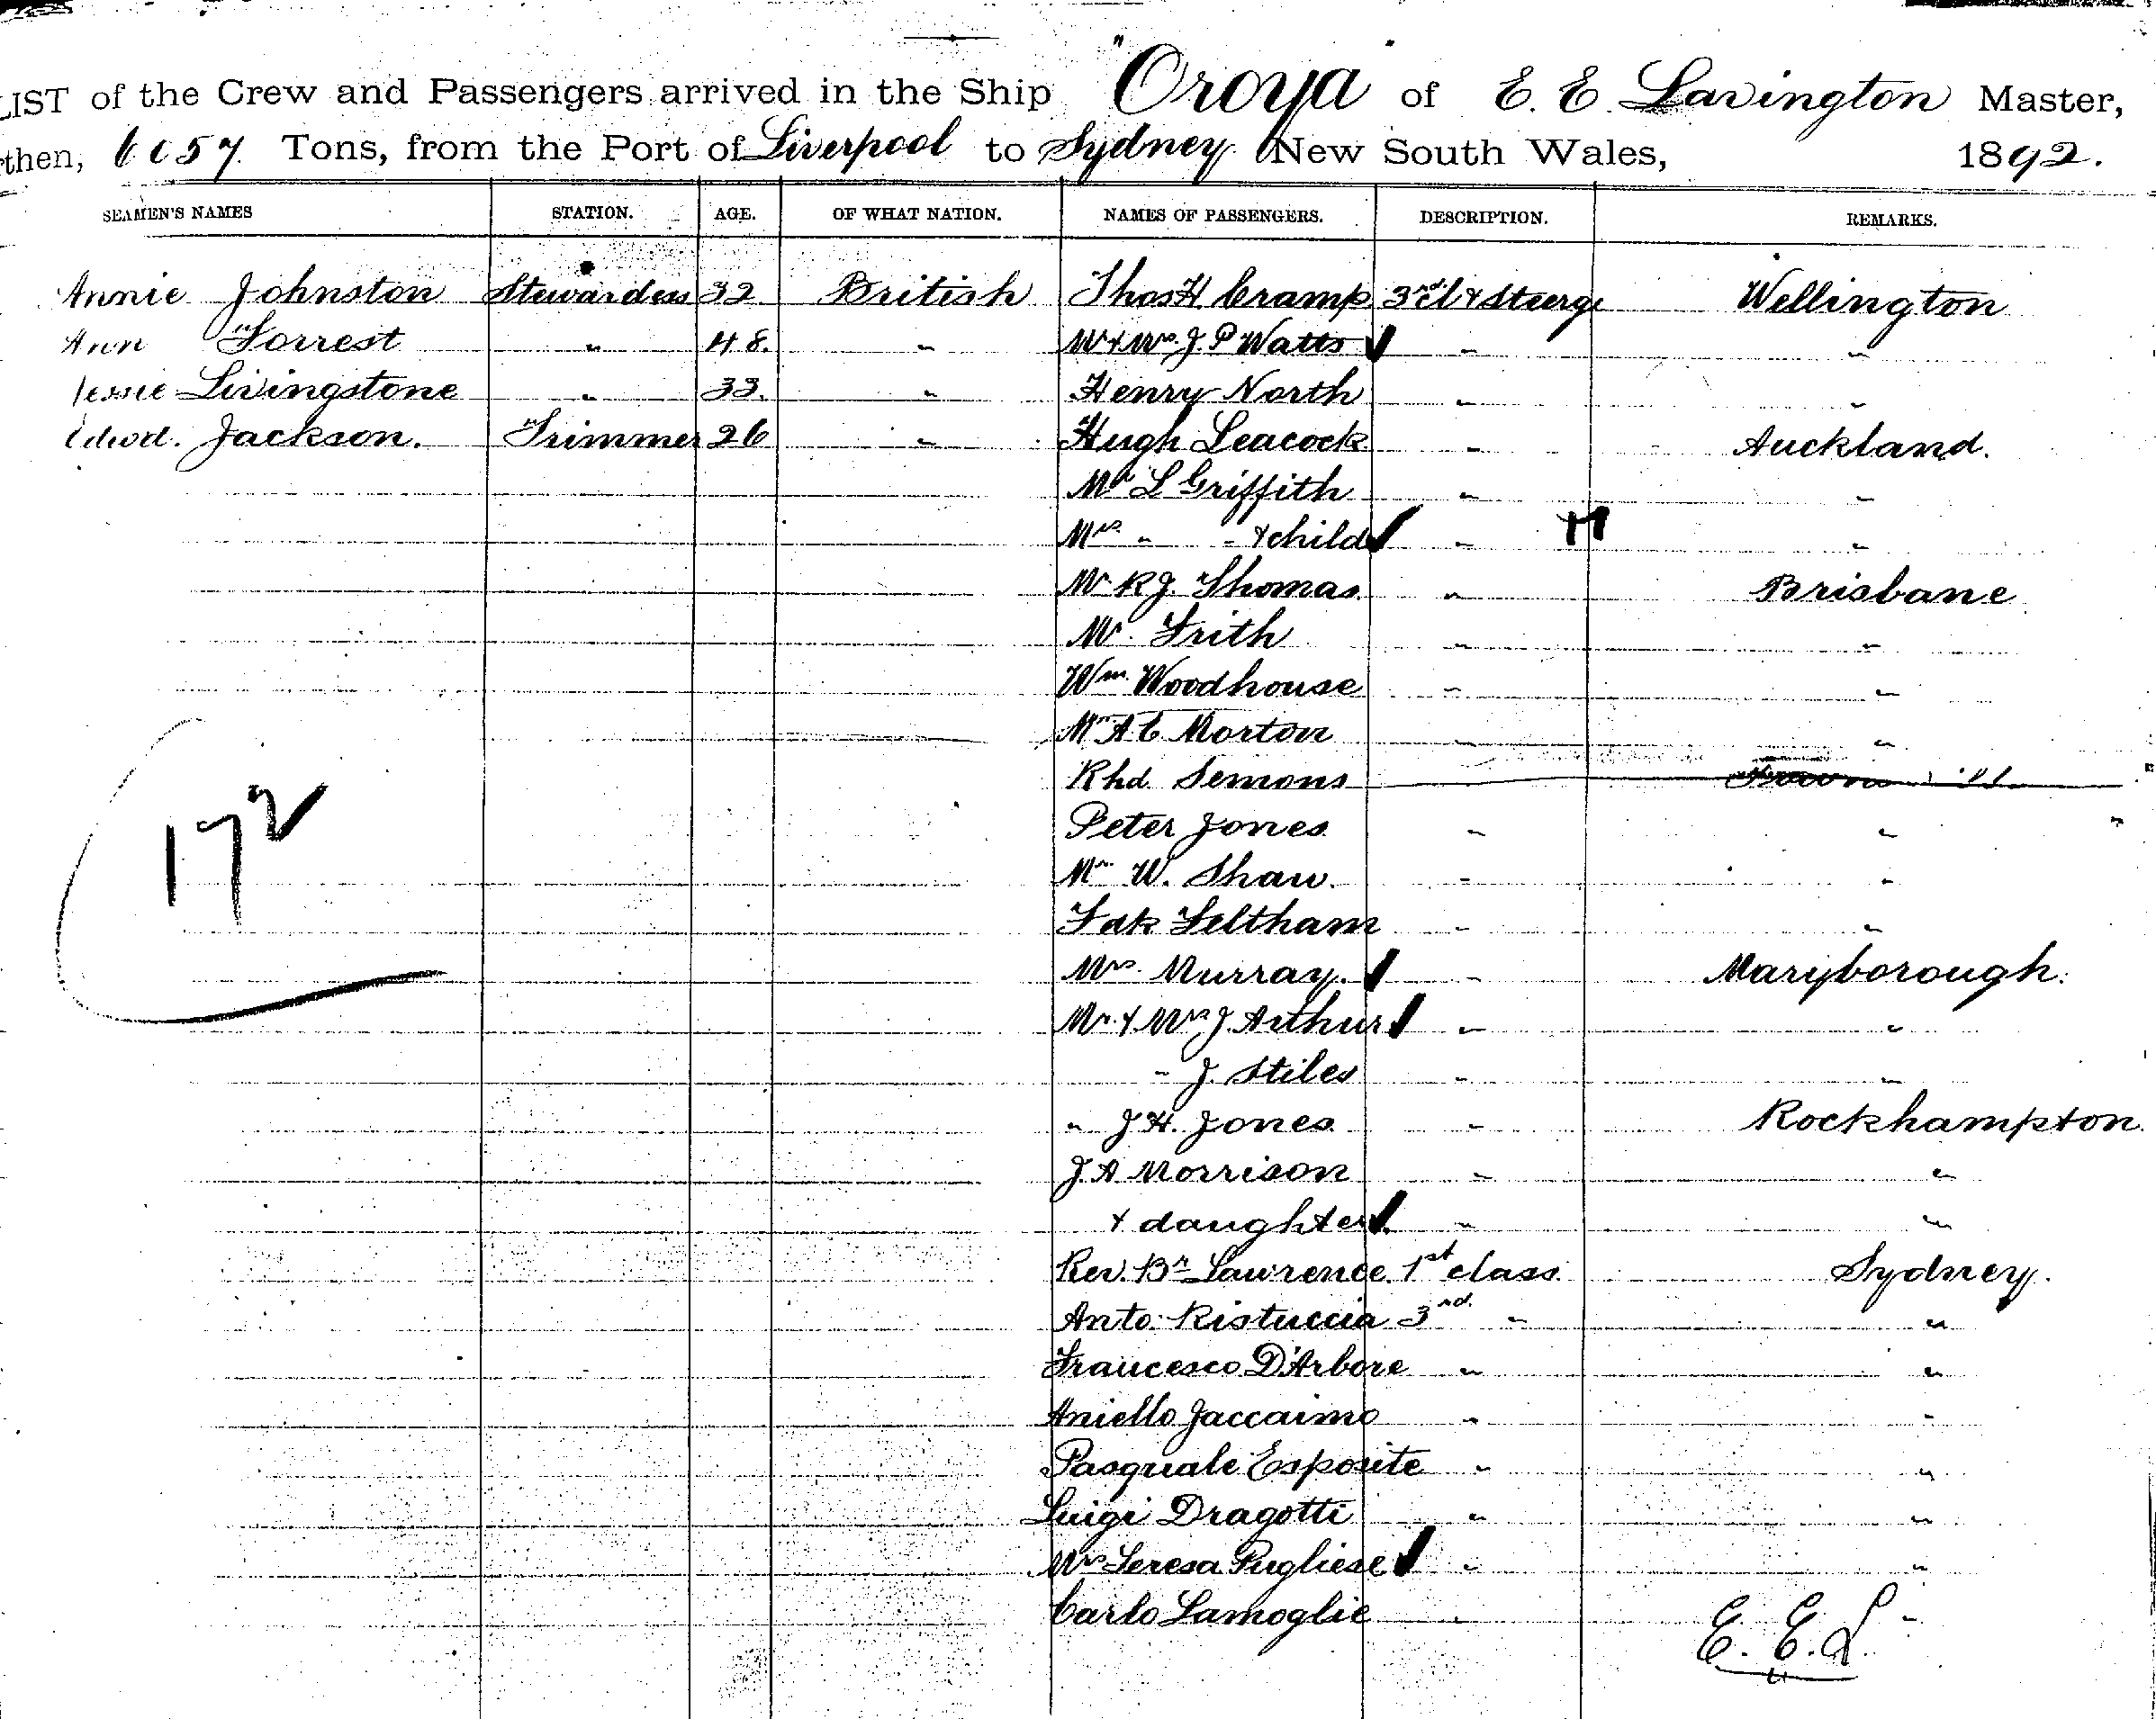 LIST of the Crew and Passengers arrived in the Ship "Oroya" of E. E. Lavington Master,
then, 6057 Tons, from the Port of Liverpool to Sydney New South Wales, 1892.
SEAMEN'S NAMES STATION. AGE. OF WHAT NATION. NAMES OF PASSENGERS. DESCRIPTION. REMARKS.
Annie Johnston Stewardess 32 British Thos H. Cramp 3rd cl & Steerge Wellington
Ann Forrest " 48. " Mr & Mrs J P Watts " "
Jessie Livingstone " 33. " Henry North " "
Edwd. Jackson. Trimmer 26 " Hugh Leacock " Auckland.
Mr L Griffith " "
Mrs " " & child " "
Mr R J. Thomas. " Brisbane
Mr. Frith " "
Wm. Woodhouse " "
Mr A C Morton " "
Rhd. Semons
Peter Jones " "
Mr W. Shaw. " "
Fdk Feltham " "
Mrs. Murray. " Maryborough.
Mr. & Mrs J Arthur " "
" J. Stiles " "
" J H. Jones " Rockhampton.
J. A Morrison " "
& daughter " "
Rev. Br Lawrence. 1st class. Sydney.
Anto. Ristuccia 3rd. " "
Francesco D'Arbore " "
Aniello Jaccaimo " "
Pasquale Esposite " "
Luigi Dragotti " "
Mrs Teresa Pugliese " "
Carlo Lamoglie " "
172
E. E. L.